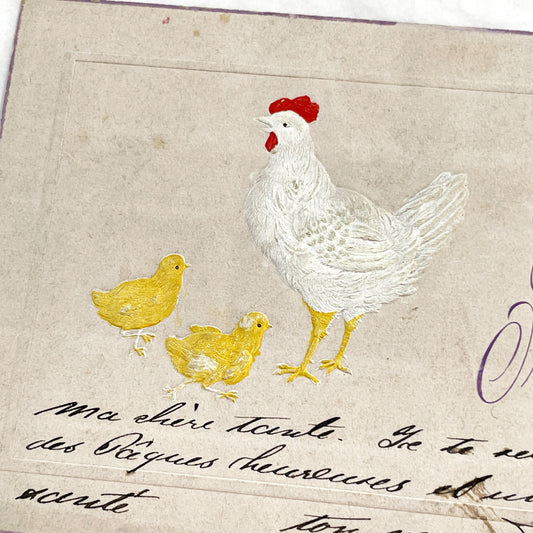 Ma chère tante. Je te
des Pâques heureuses et
santé ton